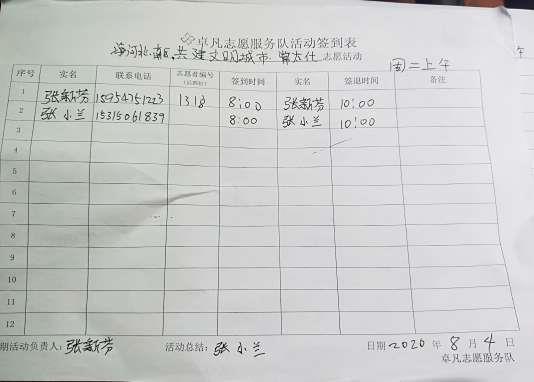 卓凡志愿服务队活动签到表
海河北、南区、共建文明城市、常态化 志愿活动
周二上午
午
序号 实名 联系电话 志愿者编号 签到时间 实名 签退时间 备注
1 张新芳 15954751223 1318 8:00 张新芳 10:00
2 张小兰 15315061839 8:00 张小兰 10:00
3
4
5
6
7
8
9
10
11
12
期活动负责人：张新芳 活动总结：张小兰 日期 2020 年 8 月 4 日
卓凡志愿服务队